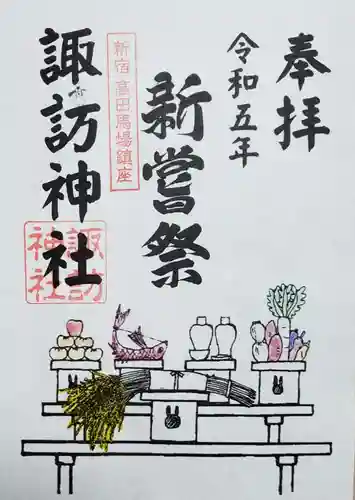 奉拝
令和五年
新嘗祭
新宿高田馬場鎮座
諏訪神社
諏訪神社